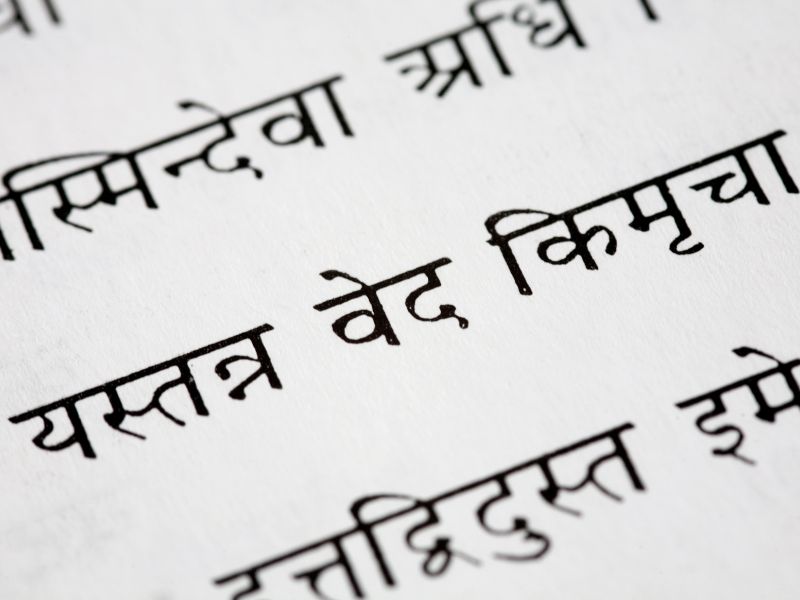 स्मिन्देवा अधि ।
यस्तन्न वेद किमृचा
इत्तद्विदुस्त इमे